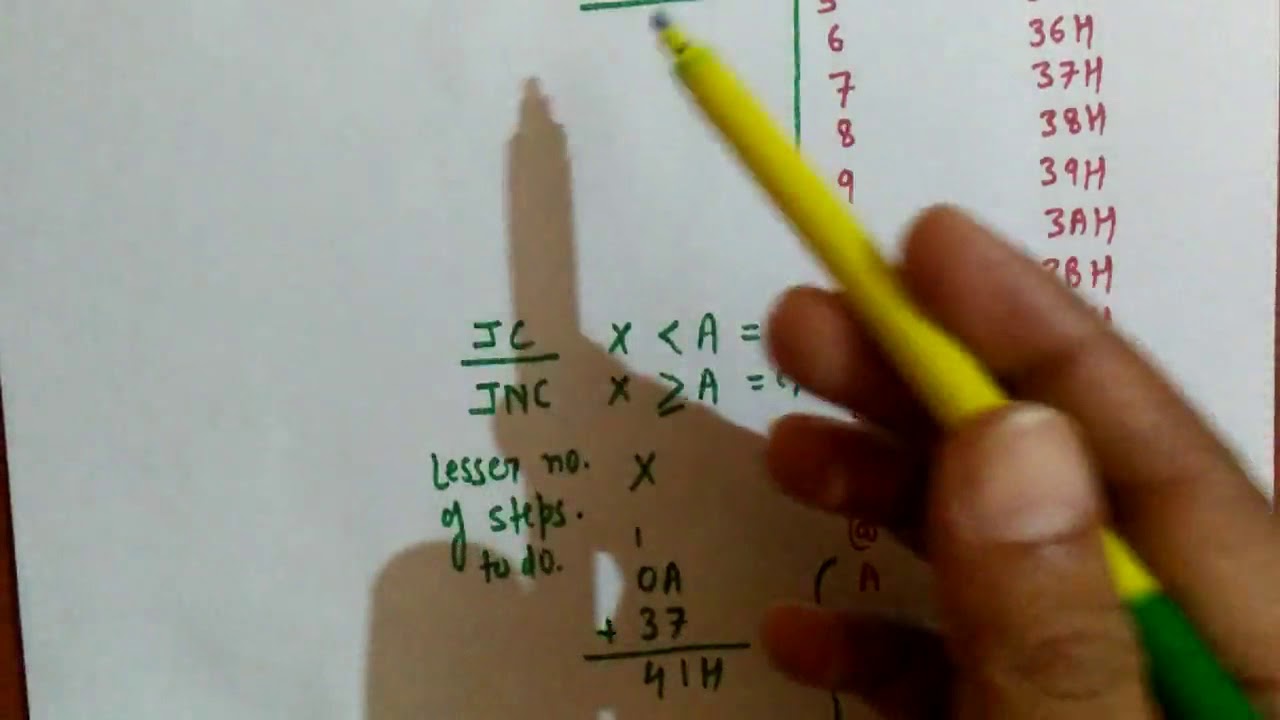 6 36H
7 37H
8 38H
9 39H
3AH
BH
JC X < A =
JNC X ≥ A =
Lesser no. X
of steps.
to do.
1
0A
+ 37
41H
@
( A